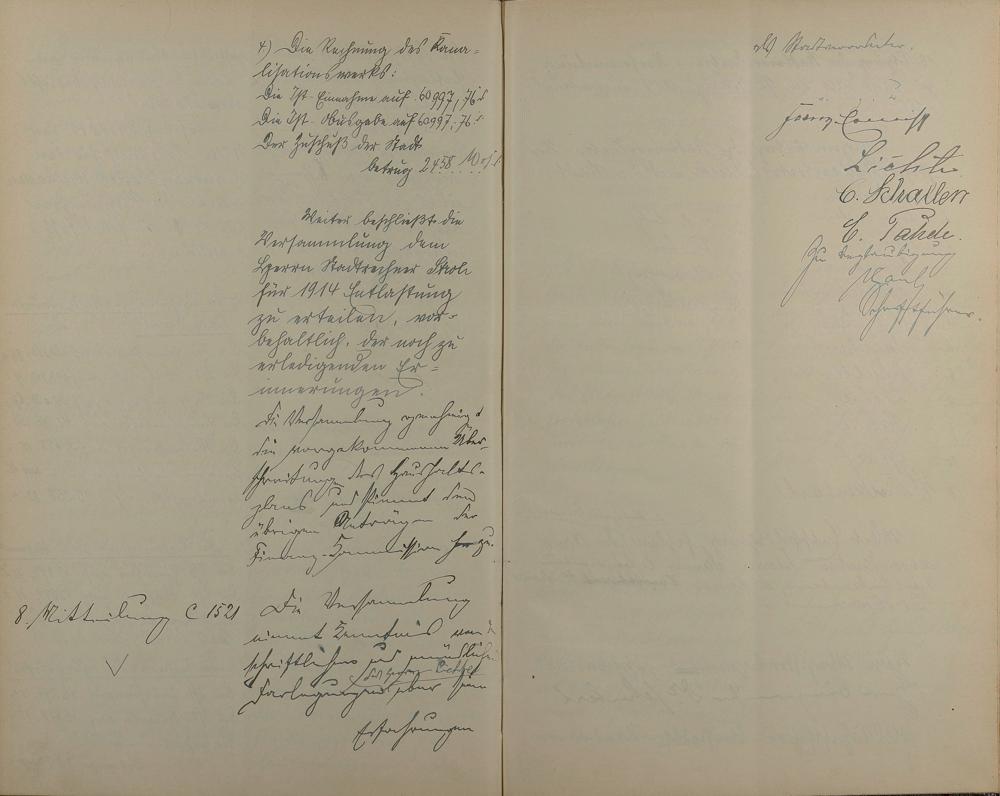 4.) Die Rechnung des Kana=
lisationswerks:
Die Ist-Einnahme auf 60997,76 ₰
Die Ist-Ausgabe auf 60997,76 ₰
Der Zuschuß der Stadt
betrug 2458
Weiter beschließt die
Versammlung dem
Herrn Stadtrechner
für 1914 Entlastung
zu erteilen, vor=
behaltlich, der noch zu
erledigenden Er=
innerungen.
Die Versammlung genehmigt
die vorgekommenen Über-
schreitungen des Haushalts-
plans und stimmt den
übrigen Anträgen der
Finanz-Kommission zu.
8. Mitteilung C 1521
Die Versammlung
nimmt Kenntnis von
schriftlichen und mündlichen
Darlegungen über seine
Erfahrungen
als Stadtverordneter.
Licht
C. Schaller
E. Pahde.
Zur Beglaubigung
Schriftführer.